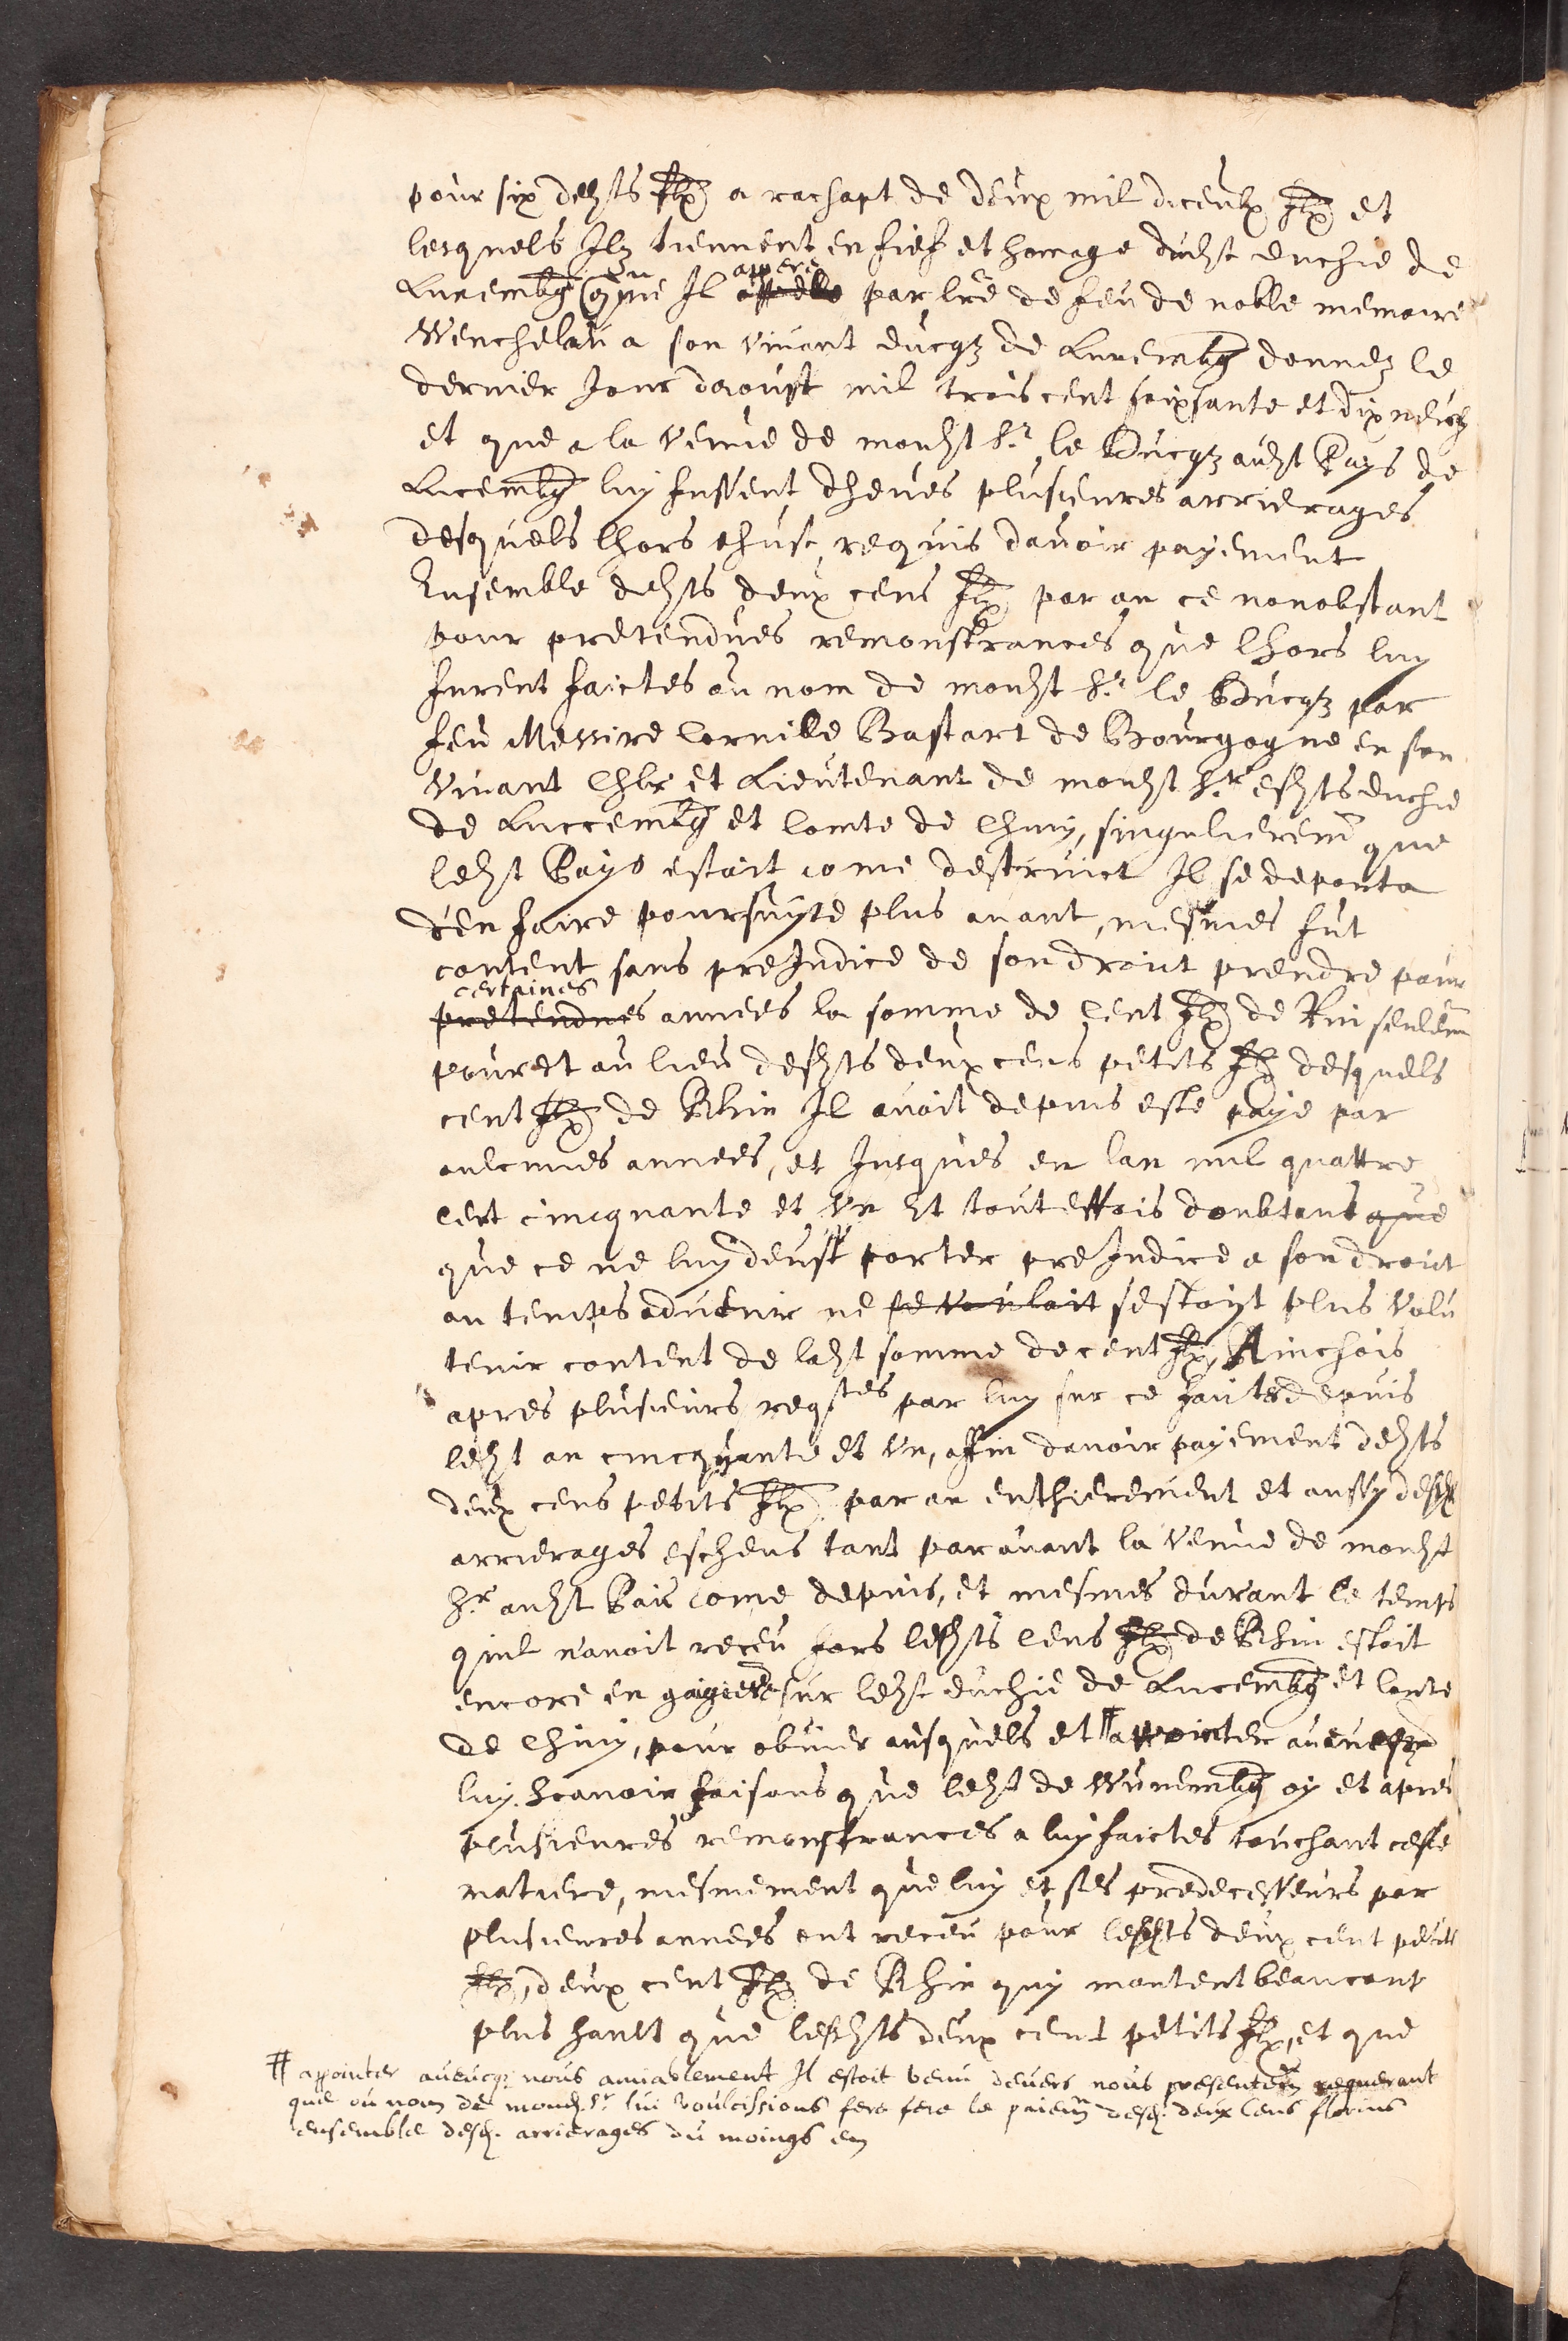 pour six deszts flz a rachapt de deux mil diceulx flz et
lesquels Ilz tiennent en fief et homage dudzt duchie de
Luxembg come Il appere par lre de feu de noble memoire
Wenchelau a son vivant ducqz de Luxembg donnez le
dernier Jour daoust mil trois cent soixsante et dix neufz
et que a la venue de mondzt Sr. le Ducqz audzt Pays de
Lucembg luy fussent dheues plusieures arrierages
desquels lhors ehust requis davoir payement
Ensemble deszts deux cens flz par an ce nonobstant
pour pretendues remonstrances que lhors luy
furent faictes au nom de mondzt Sr. le Ducqz par
feu Messire Cornille Bastart de Bourgogne en son
vivant Chlr et Lieutenant de mondzt Sr. eszts duchie
de Luccembg et Comte de Chiny, singulierem que
ledzt Pays estoit come destruict Il se deporta
den faire poursuyte plus avant, mesmes fut
content sans preJudice de son droict prendre pour
certaines
pretendues annees la somme de Cent flz de Rin seulem
pour et au lieu deszts deux cens petits flz desquels
cent flz de Rhin Il avoit depuis este paye par
aulcunes annees, et Jusques en lan mil quattre
cent cincquante et un Et touteffois doubtant que
que ce ne luy deust porter preJudice a son droict
au temps advenir ne se vouloit sestoyt plus volu
tenir content de ladzt somme de cent flz, Ainchois
apres plusieurs reqstes par luy sur ce faites depuis
ledzt an cincquante et un, affin davoir payement deszts
deux cens petits flz par an enthierement et aussy desz
arrierages escheus tant paravant la venue de mondzt
Sr. audzt Pais Come depuis, et mesmes durant le temps
quil navoit receu fors leszts Cens flz de Rhin estoit
encore en gaigiere sur ledzt duchie de Lucembg et Conte
de Chiny, pour obvier ausquels et # appointer avecq
luy. Scavoir faisons que ledzt de Wunembg oy et apres
plusieures remonstrances a luy faictes touchant ceste
matiere, mesmement que luy et ses predecesseurs par
plusieures annees ont receu pour leszts deux cent petits
flz, deux cent flz de Rhin quy montent beaucoup
plus hault que leszts deux cent petits flz, et que
# appointer aveucqz nous amiablement Il estoit venu devers nous presentem requerant
que ou nom de mond. Sr lui voulcissions fere fere le paiem desd. deux Cens florins
ensemble desd. arrierages du moings en